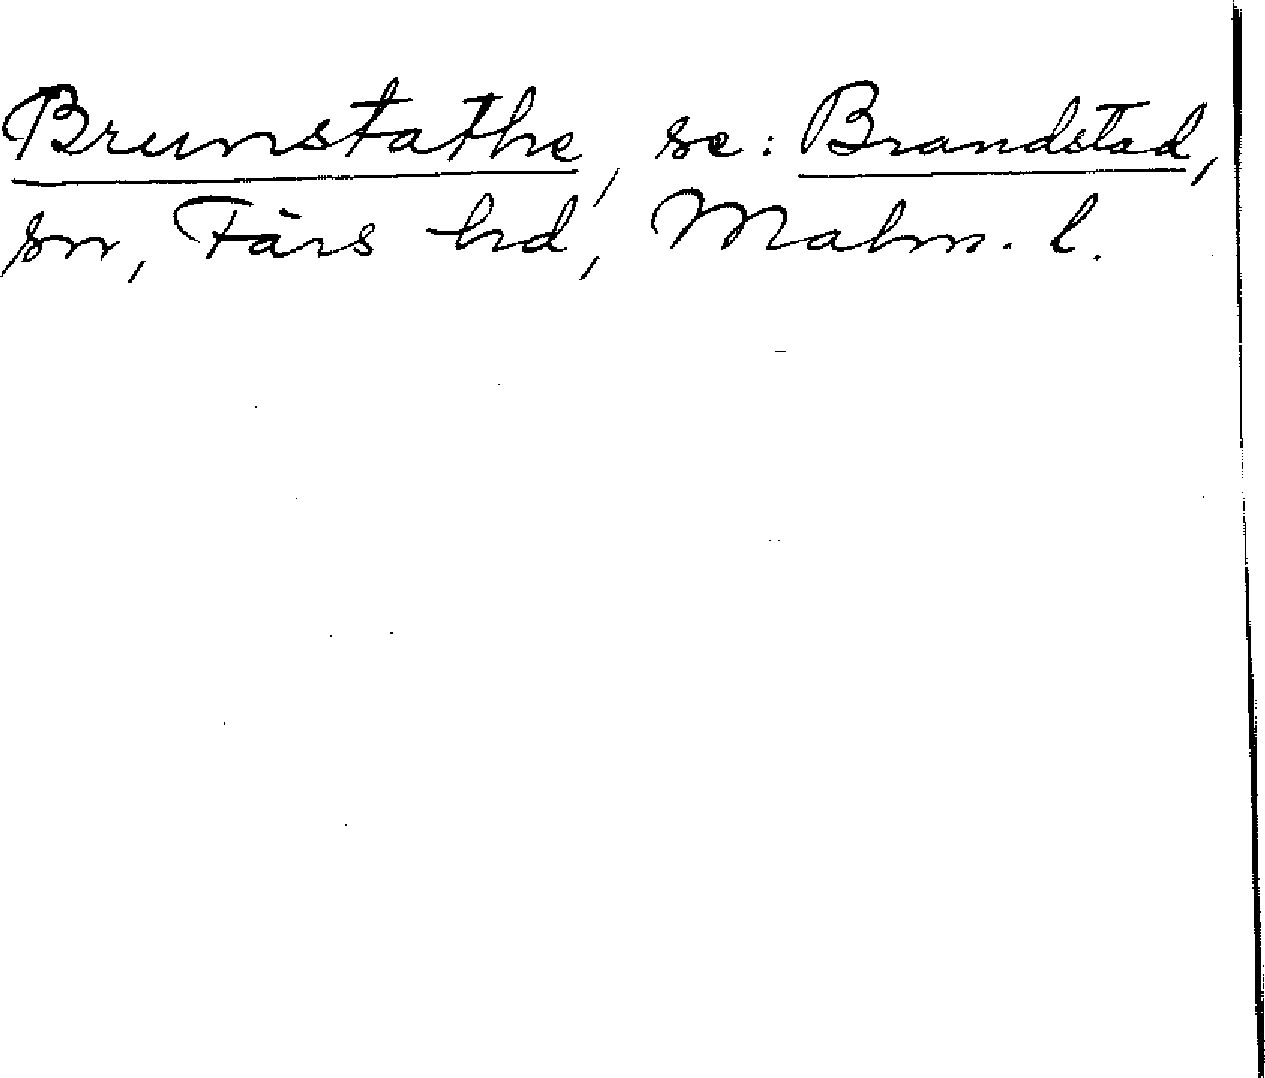 Brunstathe, se: Brandstad,
sn, Färs hd, Malm. l.